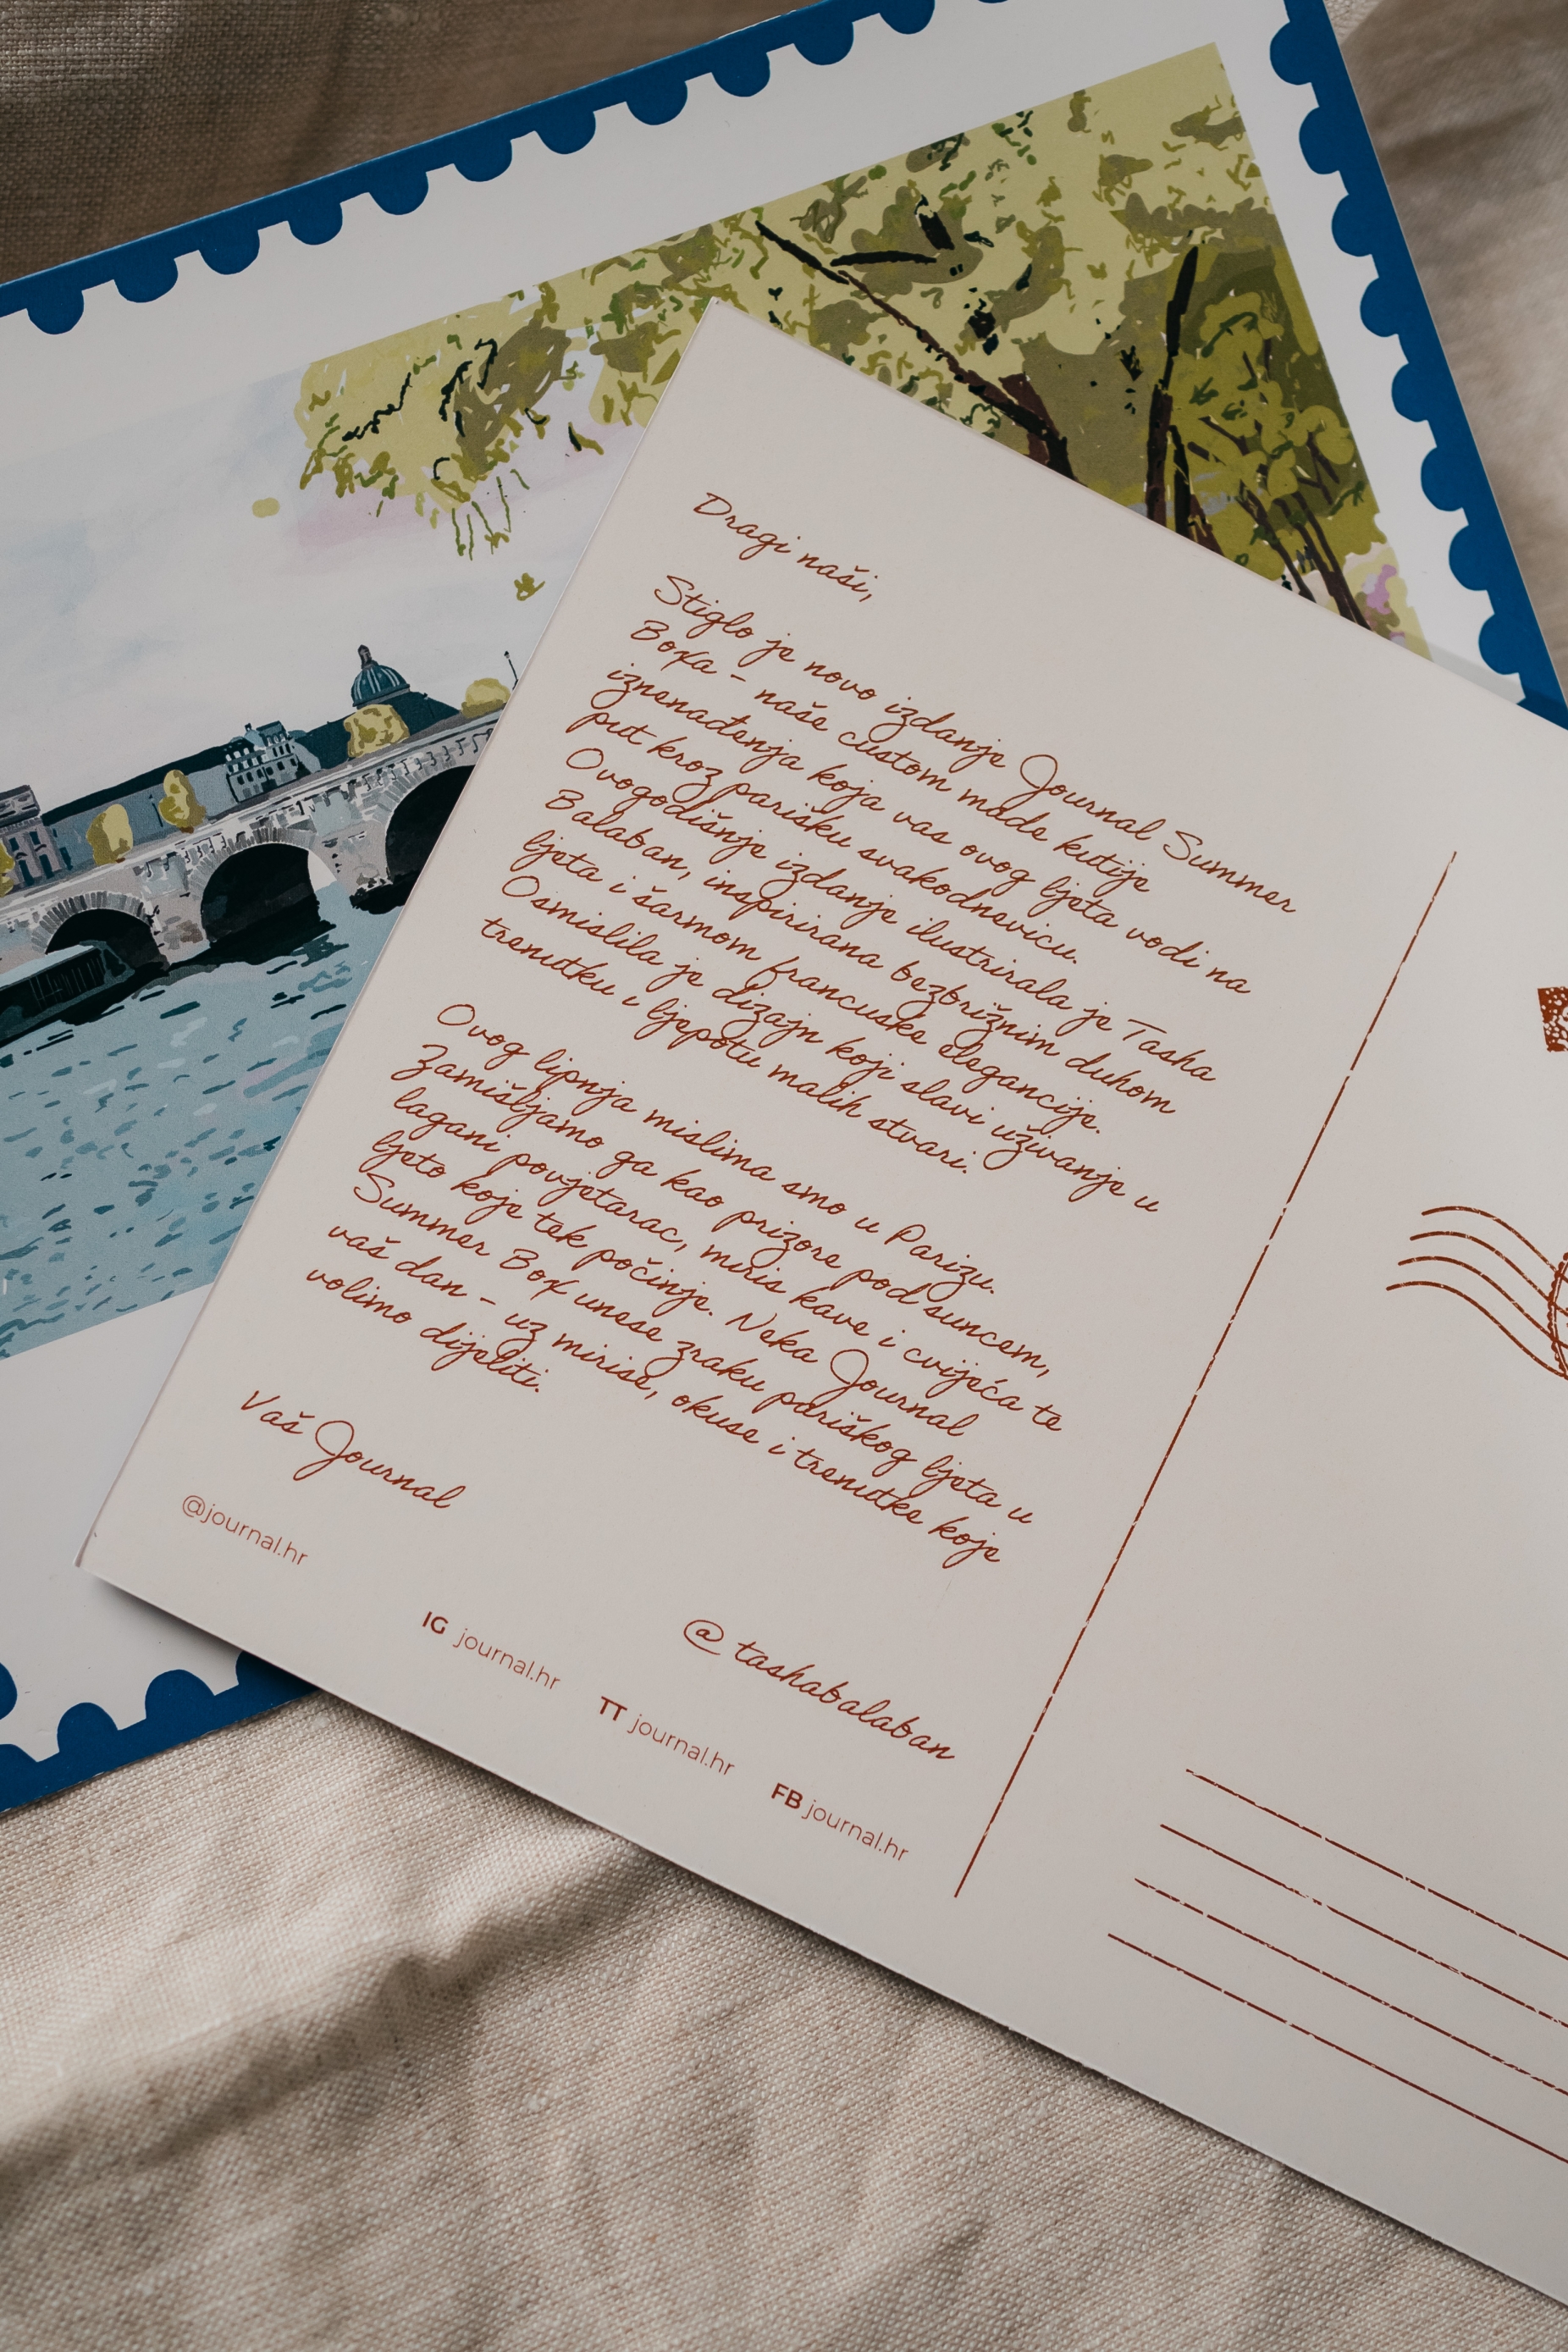 Dragi naši,
Stiglo je novo izdanje Journal Summer
Boxa - naše custom made kutije
iznenađenja koja vas ovog ljeta vodi na
put kroz parišku svakodnevicu.
Ovogodišnje izdanje ilustrirala je Tasha
Balaban, inspirirana bezbrižnim duhom
ljeta i šarmom francuske elegancije.
Osmislila je dizajn koji slavi uživanje u
trenutku i ljepotu malih stvari.
Ovog lipnja mislima smo u Parizu.
Zamišljamo ga kao prizore pod suncem,
lagani povjetarac, miris kave i cvijeća te
ljeto koje tek počinje. Neka Journal
Summer Box unese zraku pariškog ljeta u
vaš dan - uz mirise, okuse i trenutke koje
volimo dijeliti.
Vaš Journal
@journal.hr
@tashabalaban
IG journal.hr TT journal.hr FB journal.hr